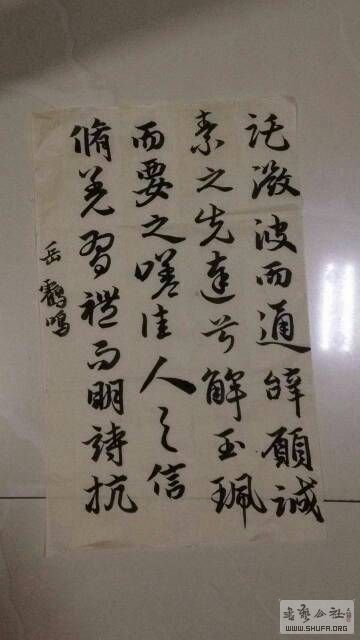 託微波而通辭願誠
素之先達兮解玉珮
而要之嗟佳人之信
脩羌習禮而明詩抗
岳鶴鳴
書藝公社
WWW.SHUFA.ORG